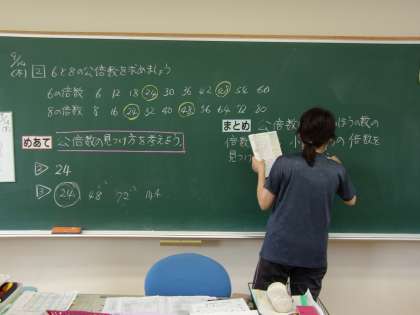 9/14
(木) 2 6と8の公倍数を求めましょう
6の倍数 6 12 18 24 30 36 42 48 54 60
8の倍数 8 16 24 32 40 48 56 64 72 80
めあて 公倍数の見つけ方を考えよう。
まとめ 公倍数 ほうの数の
倍数 の倍数を
見つけ
② 24
③ 24, 48, 72, 144